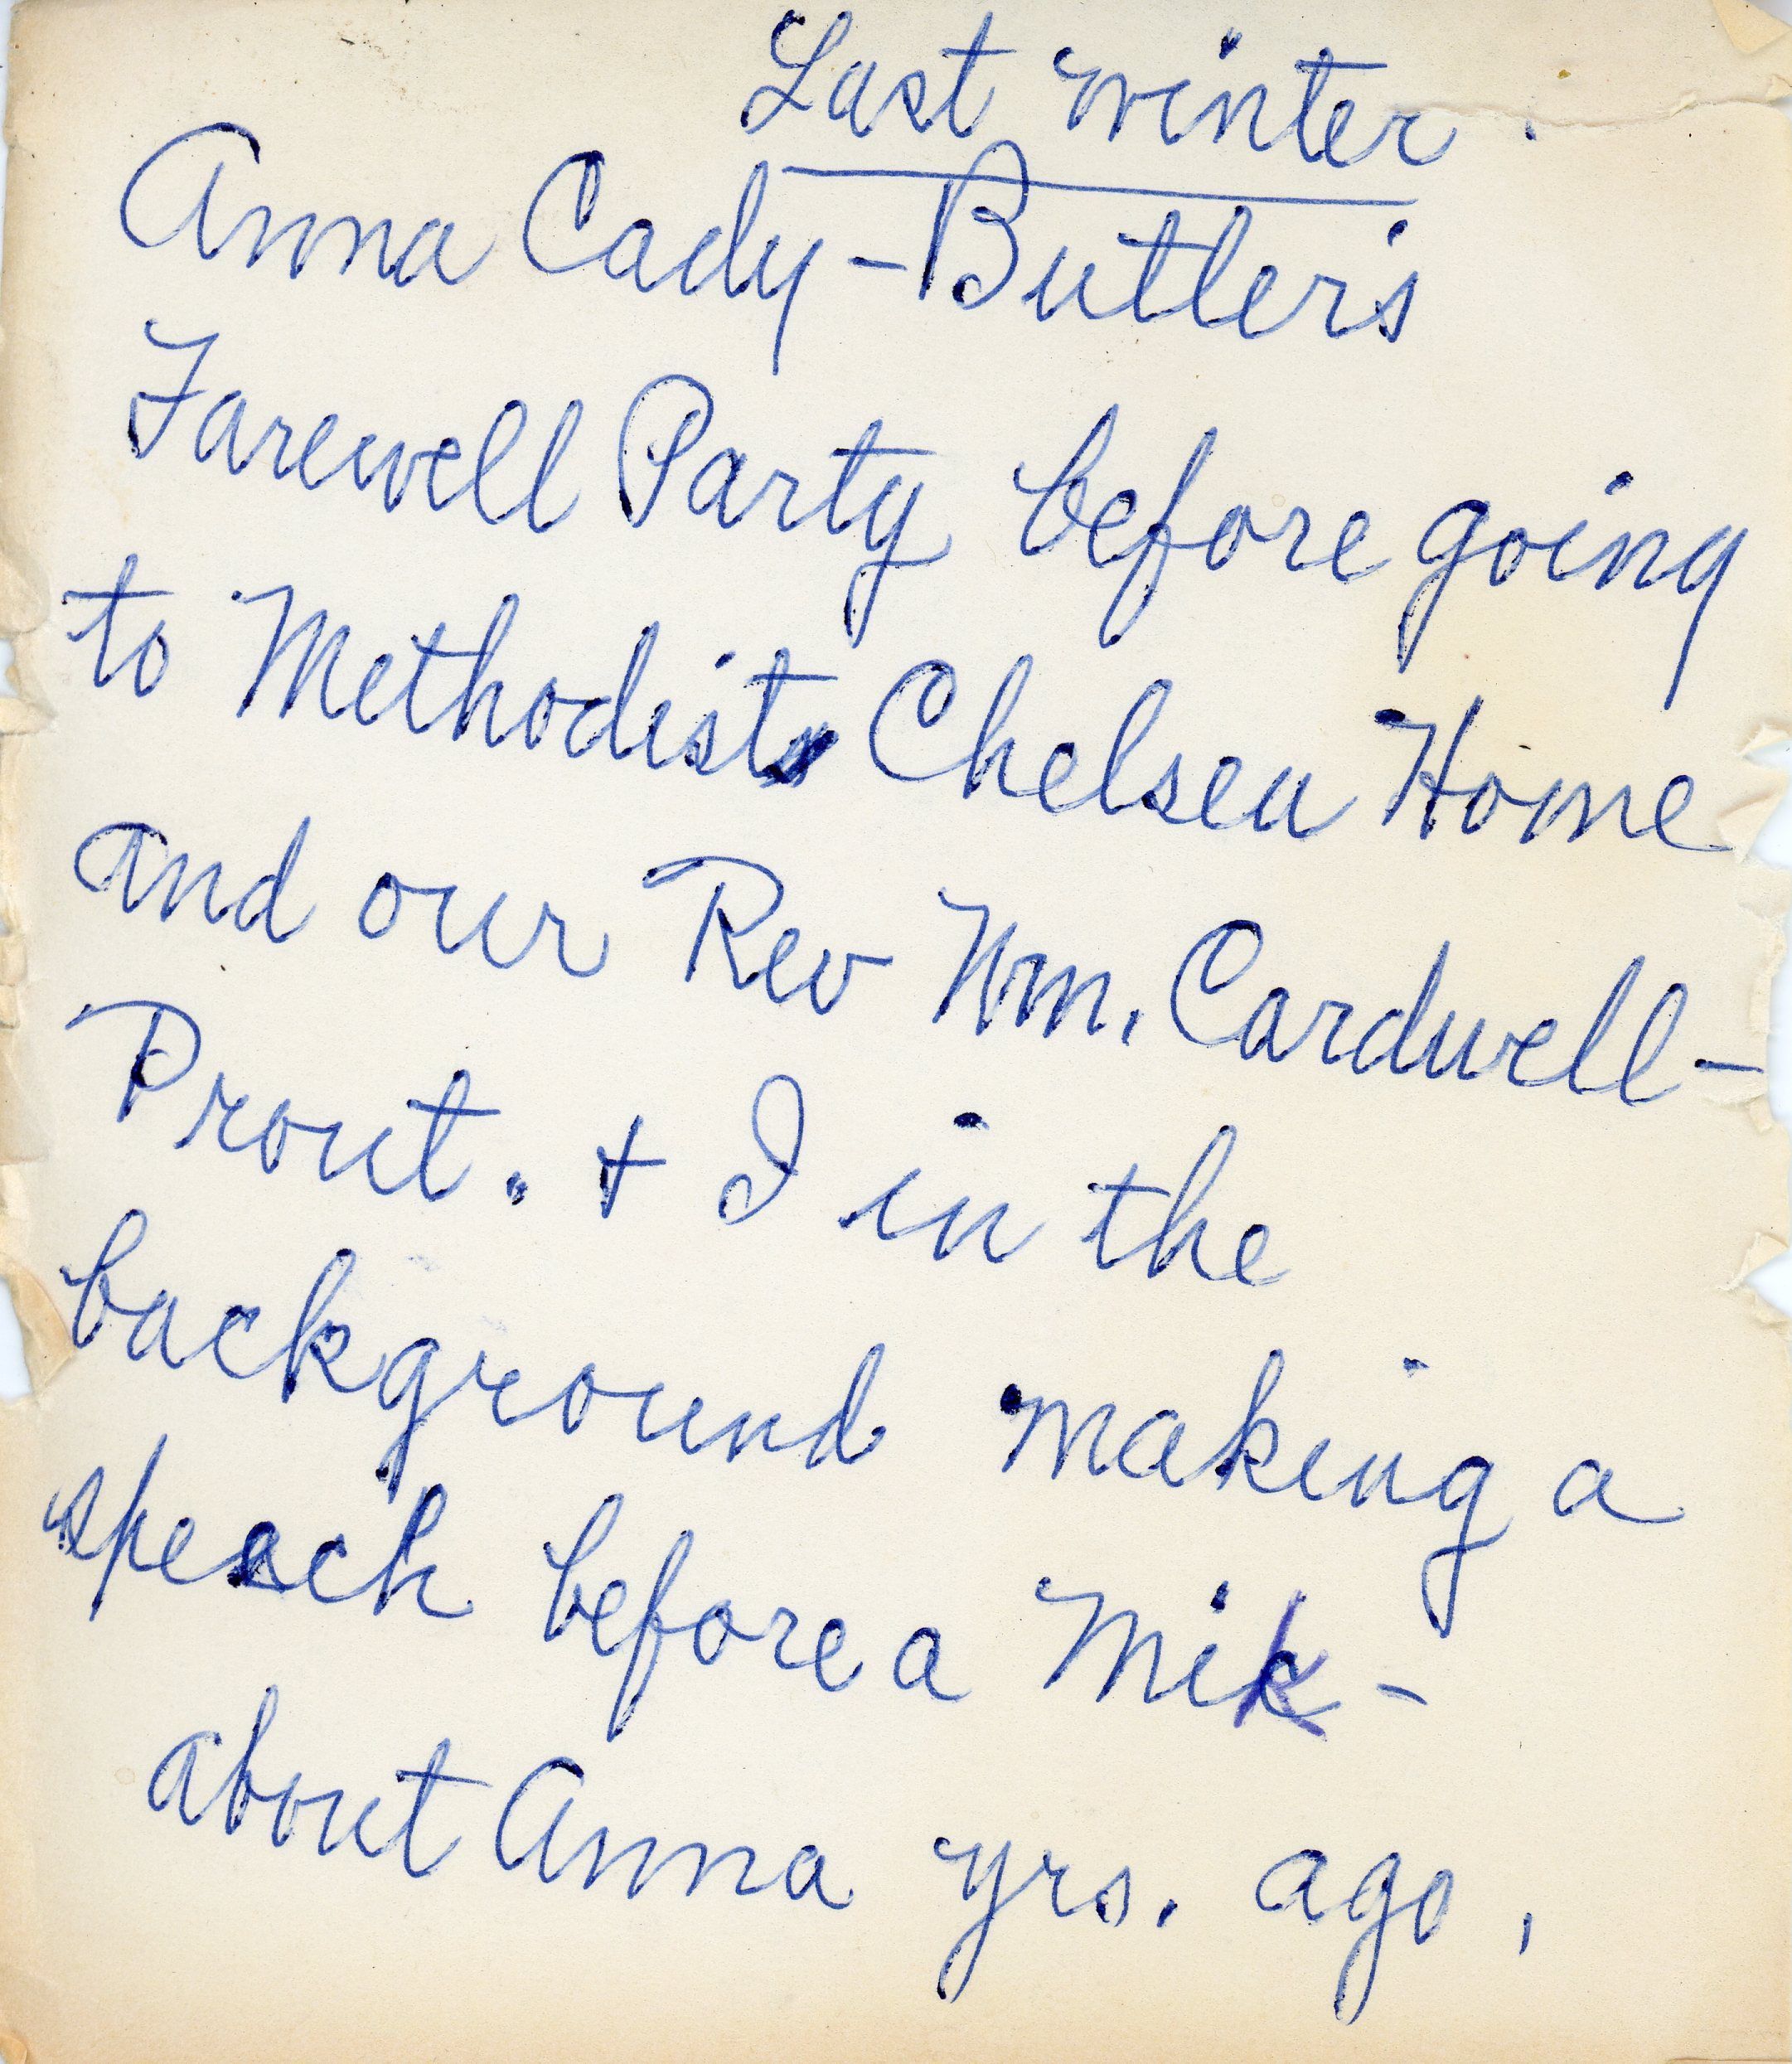 Last winter.
Anna Cady-Butler's
Farewell Party before going
to Methodist Chelsea Home
and our Rev Wm. Cardwell-
Prout. + I in the
background making a
speach before a Mik-
about Anna yrs. ago.